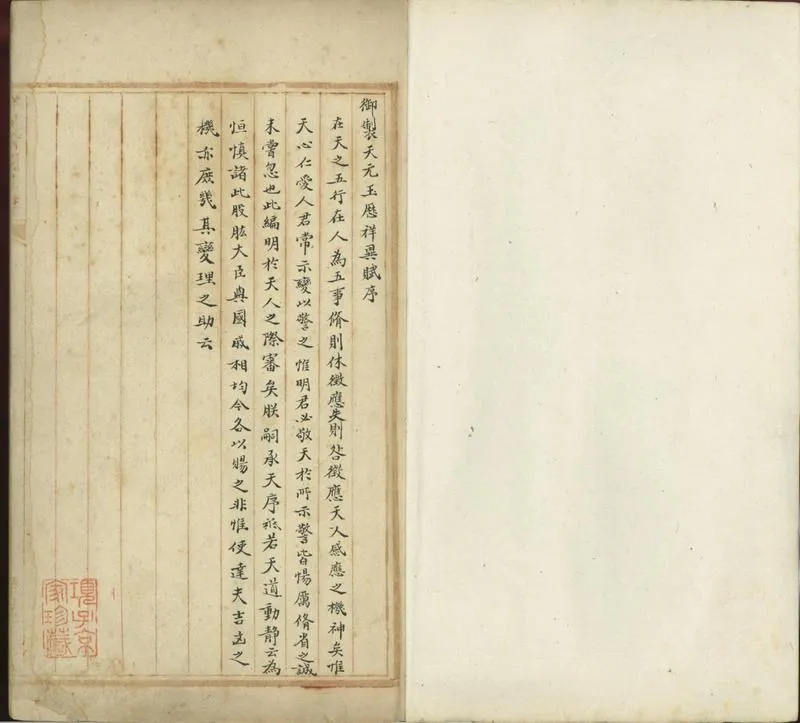 御製天元玉厯祥異賦序
在天之五行在人為五事脩則休徵應失則咎徵應天人感應之機神矣惟
天心仁愛人君常示變以警之惟明君必敬天於所示警皆惕厲脩省之誠
未嘗忽也此編明於天人之際審矣朕嗣承天序祗若天道動静云為
恒慎諸此股肱大臣與國戚相均今各以賜之非惟使達夫吉凶之
機亦庶㡬其變理之助云
項子京
家珍藏